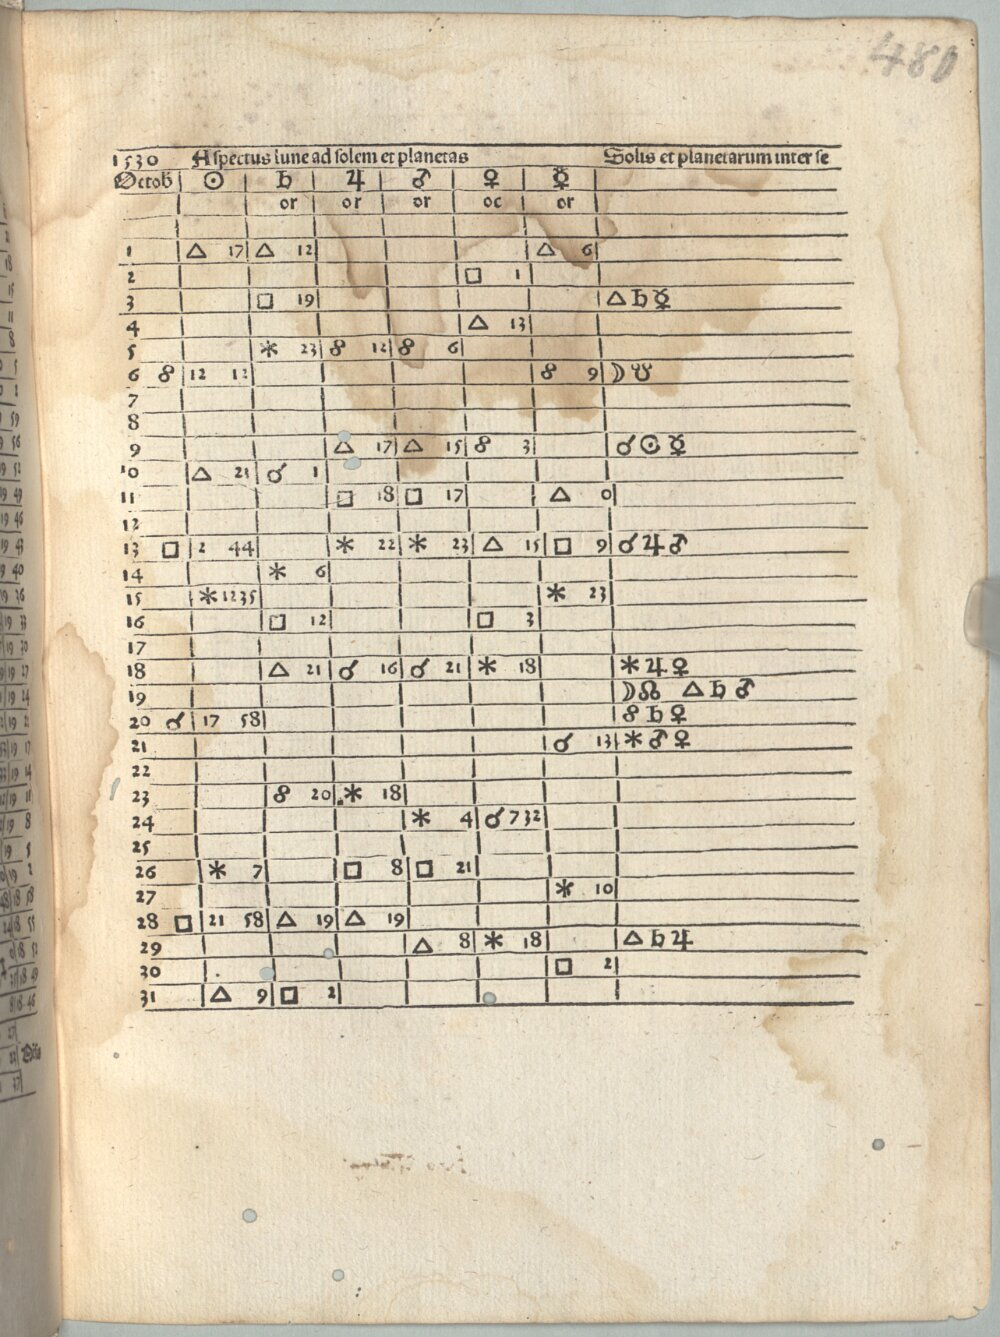 480
1530 Aspectus lune ad solem et planetas Solis et planetarum inter se
Octob ☉ ♄ ♃ ♂ ♀ ☿
or or or oc or
1 △ 17 △ 12 △ 6
2 □ 1
3 □ 19 △ ♄ ☿
4 △ 13
5 ⚹ 23 ☍ 12 ☍ 6
6 ☍ 12 12 ☍ 9 ☽ ☋
7
8
9 △ 17 △ 15 ☍ 3 ☌ ☉ ☿
10 △ 21 ☌ 1
11 □ 18 □ 17 △ 0
12
13 □ 2 44 ⚹ 22 ⚹ 23 △ 15 □ 9 ☌ ♃ ♂
14 ⚹ 6
15 ⚹ 12 35 ⚹ 23
16 □ 12 □ 3
17
18 △ 21 ☌ 16 ☌ 21 ⚹ 18 ⚹ ♃ ♀
19 ☽ ☊ △ ♄ ♂
20 ☌ 17 58 ☍ ♄ ♀
21 ☌ 13 ⚹ ♂ ♀
22
23 ☍ 20 ⚹ 18
24 ⚹ 4 ☌ 7 32
25
26 ⚹ 7 □ 8 □ 21
27 ⚹ 10
28 □ 21 58 △ 19 △ 19
29 △ 8 ⚹ 18 △ ♄ ♃
30 □ 2
31 △ 9 □ 2